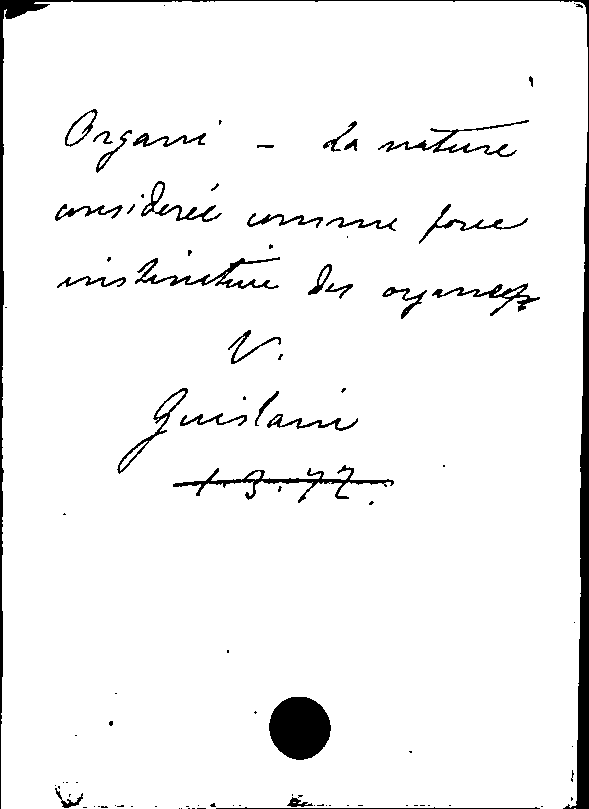 Organi - La nature
considereé comme force
instinctive des organes
V.
Guislain
1.3.72.